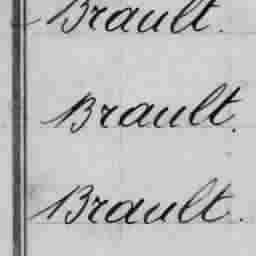 Brault.
Brault.
Brault.